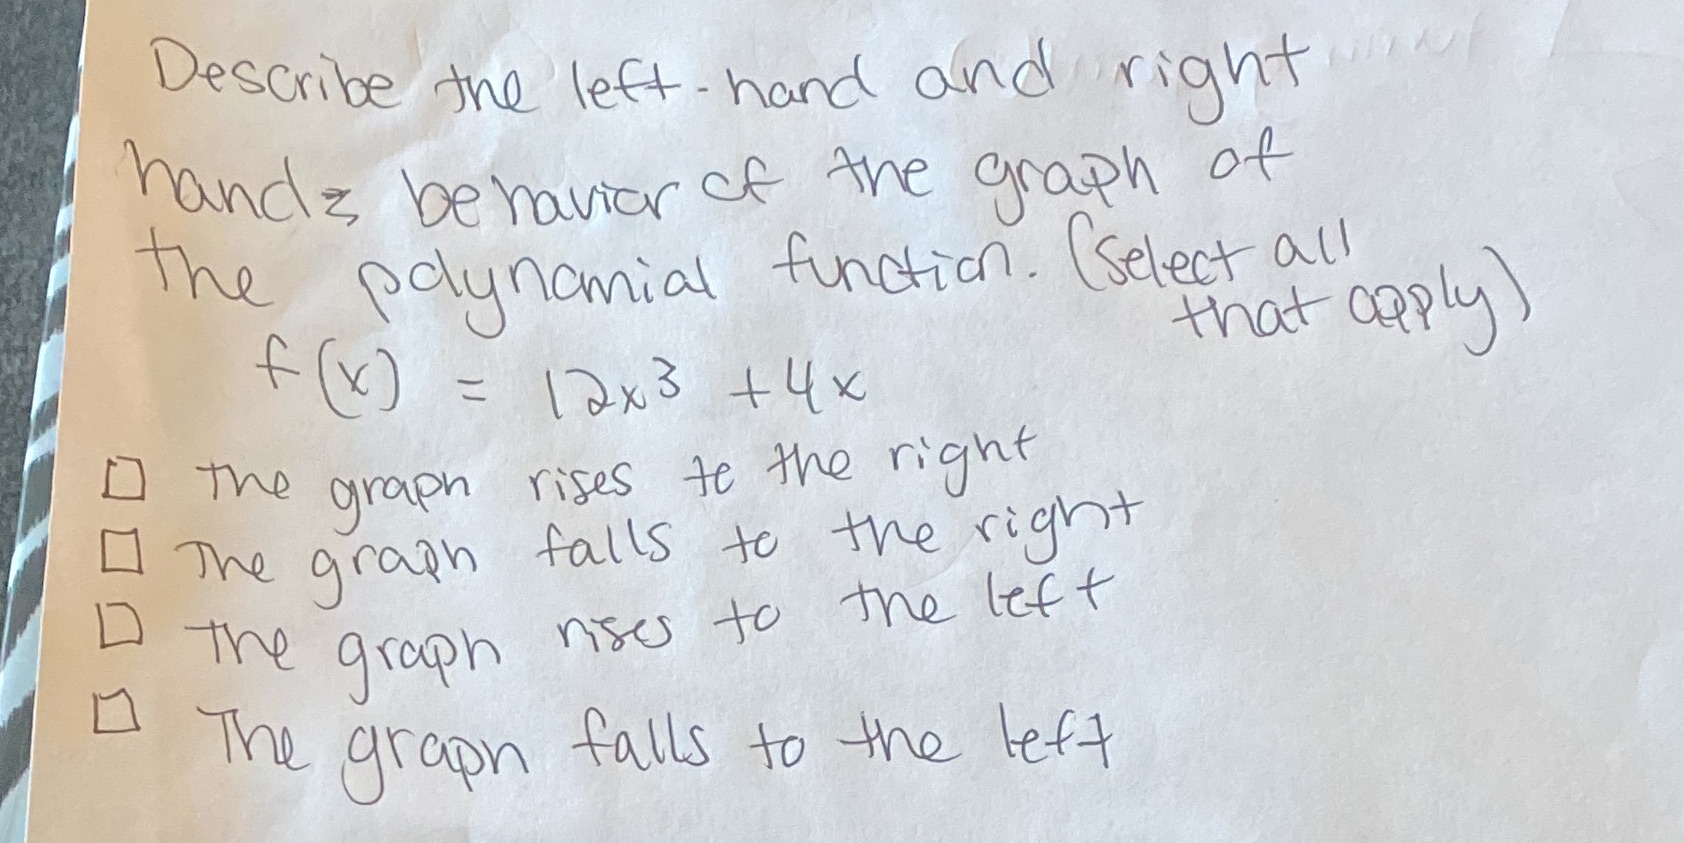 Describe the left-hand and right
hands behavior of the graph of
the polynomial function. (select all
that apply)
f(x) = 12x³ + 4x
□ The graph rises to the right
□ The graph falls to the right
□ The graph rises to the left
□ The graph falls to the left